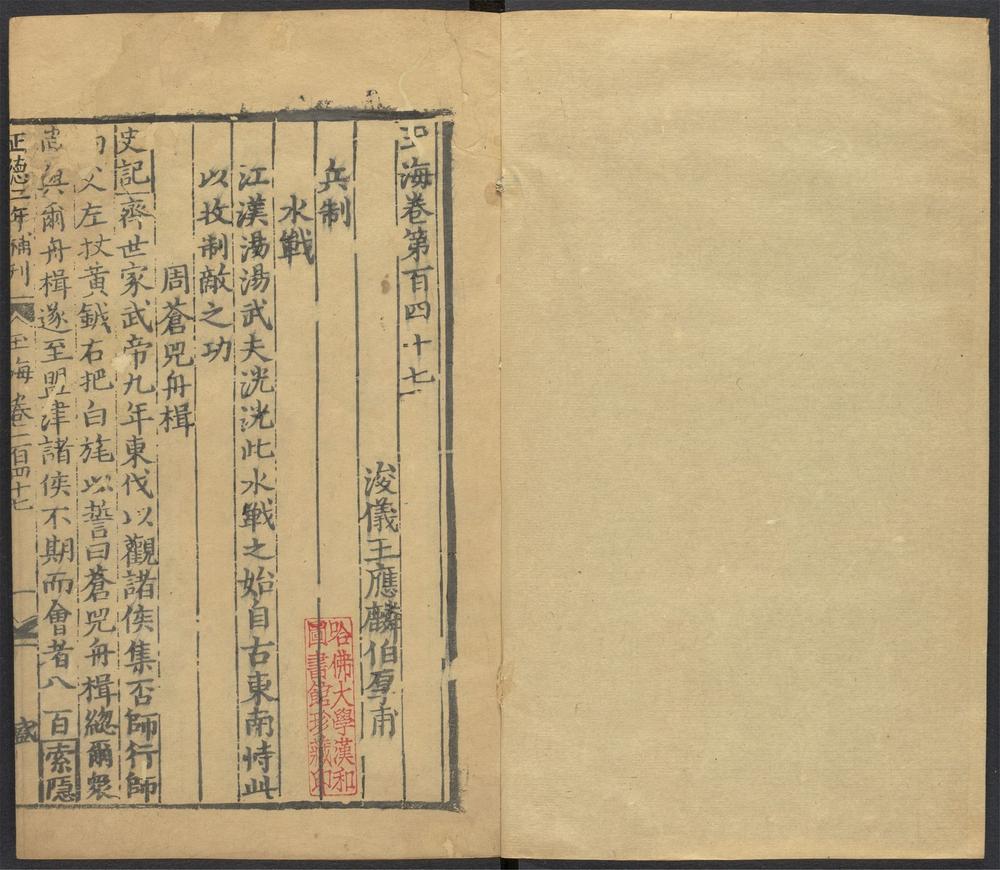 玉海卷第百四十七
浚儀王應麟伯厚甫
兵制
水戰
江漢湯湯武夫洸洸此水戰之始自古東南恃此
以收制敵之功
周蒼兕舟楫
史記齊世家武帝九年東伐以觀諸侯集否師行師
尚父左杖黃鉞右把白旄以誓曰蒼兕舟楫緫爾衆
與爾舟楫遂至盟津諸侯不期而會者八百索隱
正德二年補刊 玉海卷一百四十七 一 盛
哈佛大學漢和
圖書館珍藏印